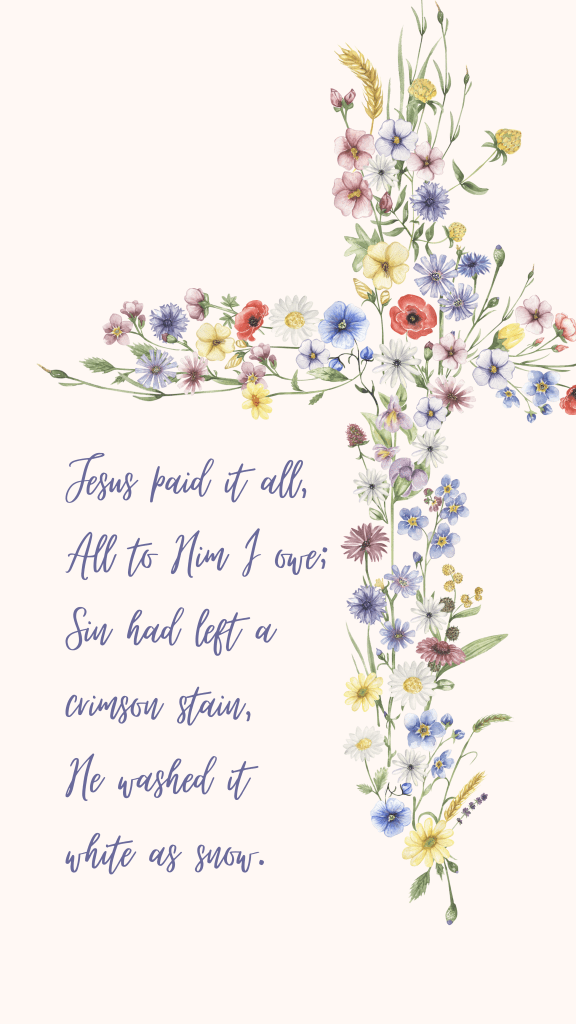 Jesus paid it all,
All to Him I owe;
Sin had left a
crimson stain,
He washed it
white as snow.